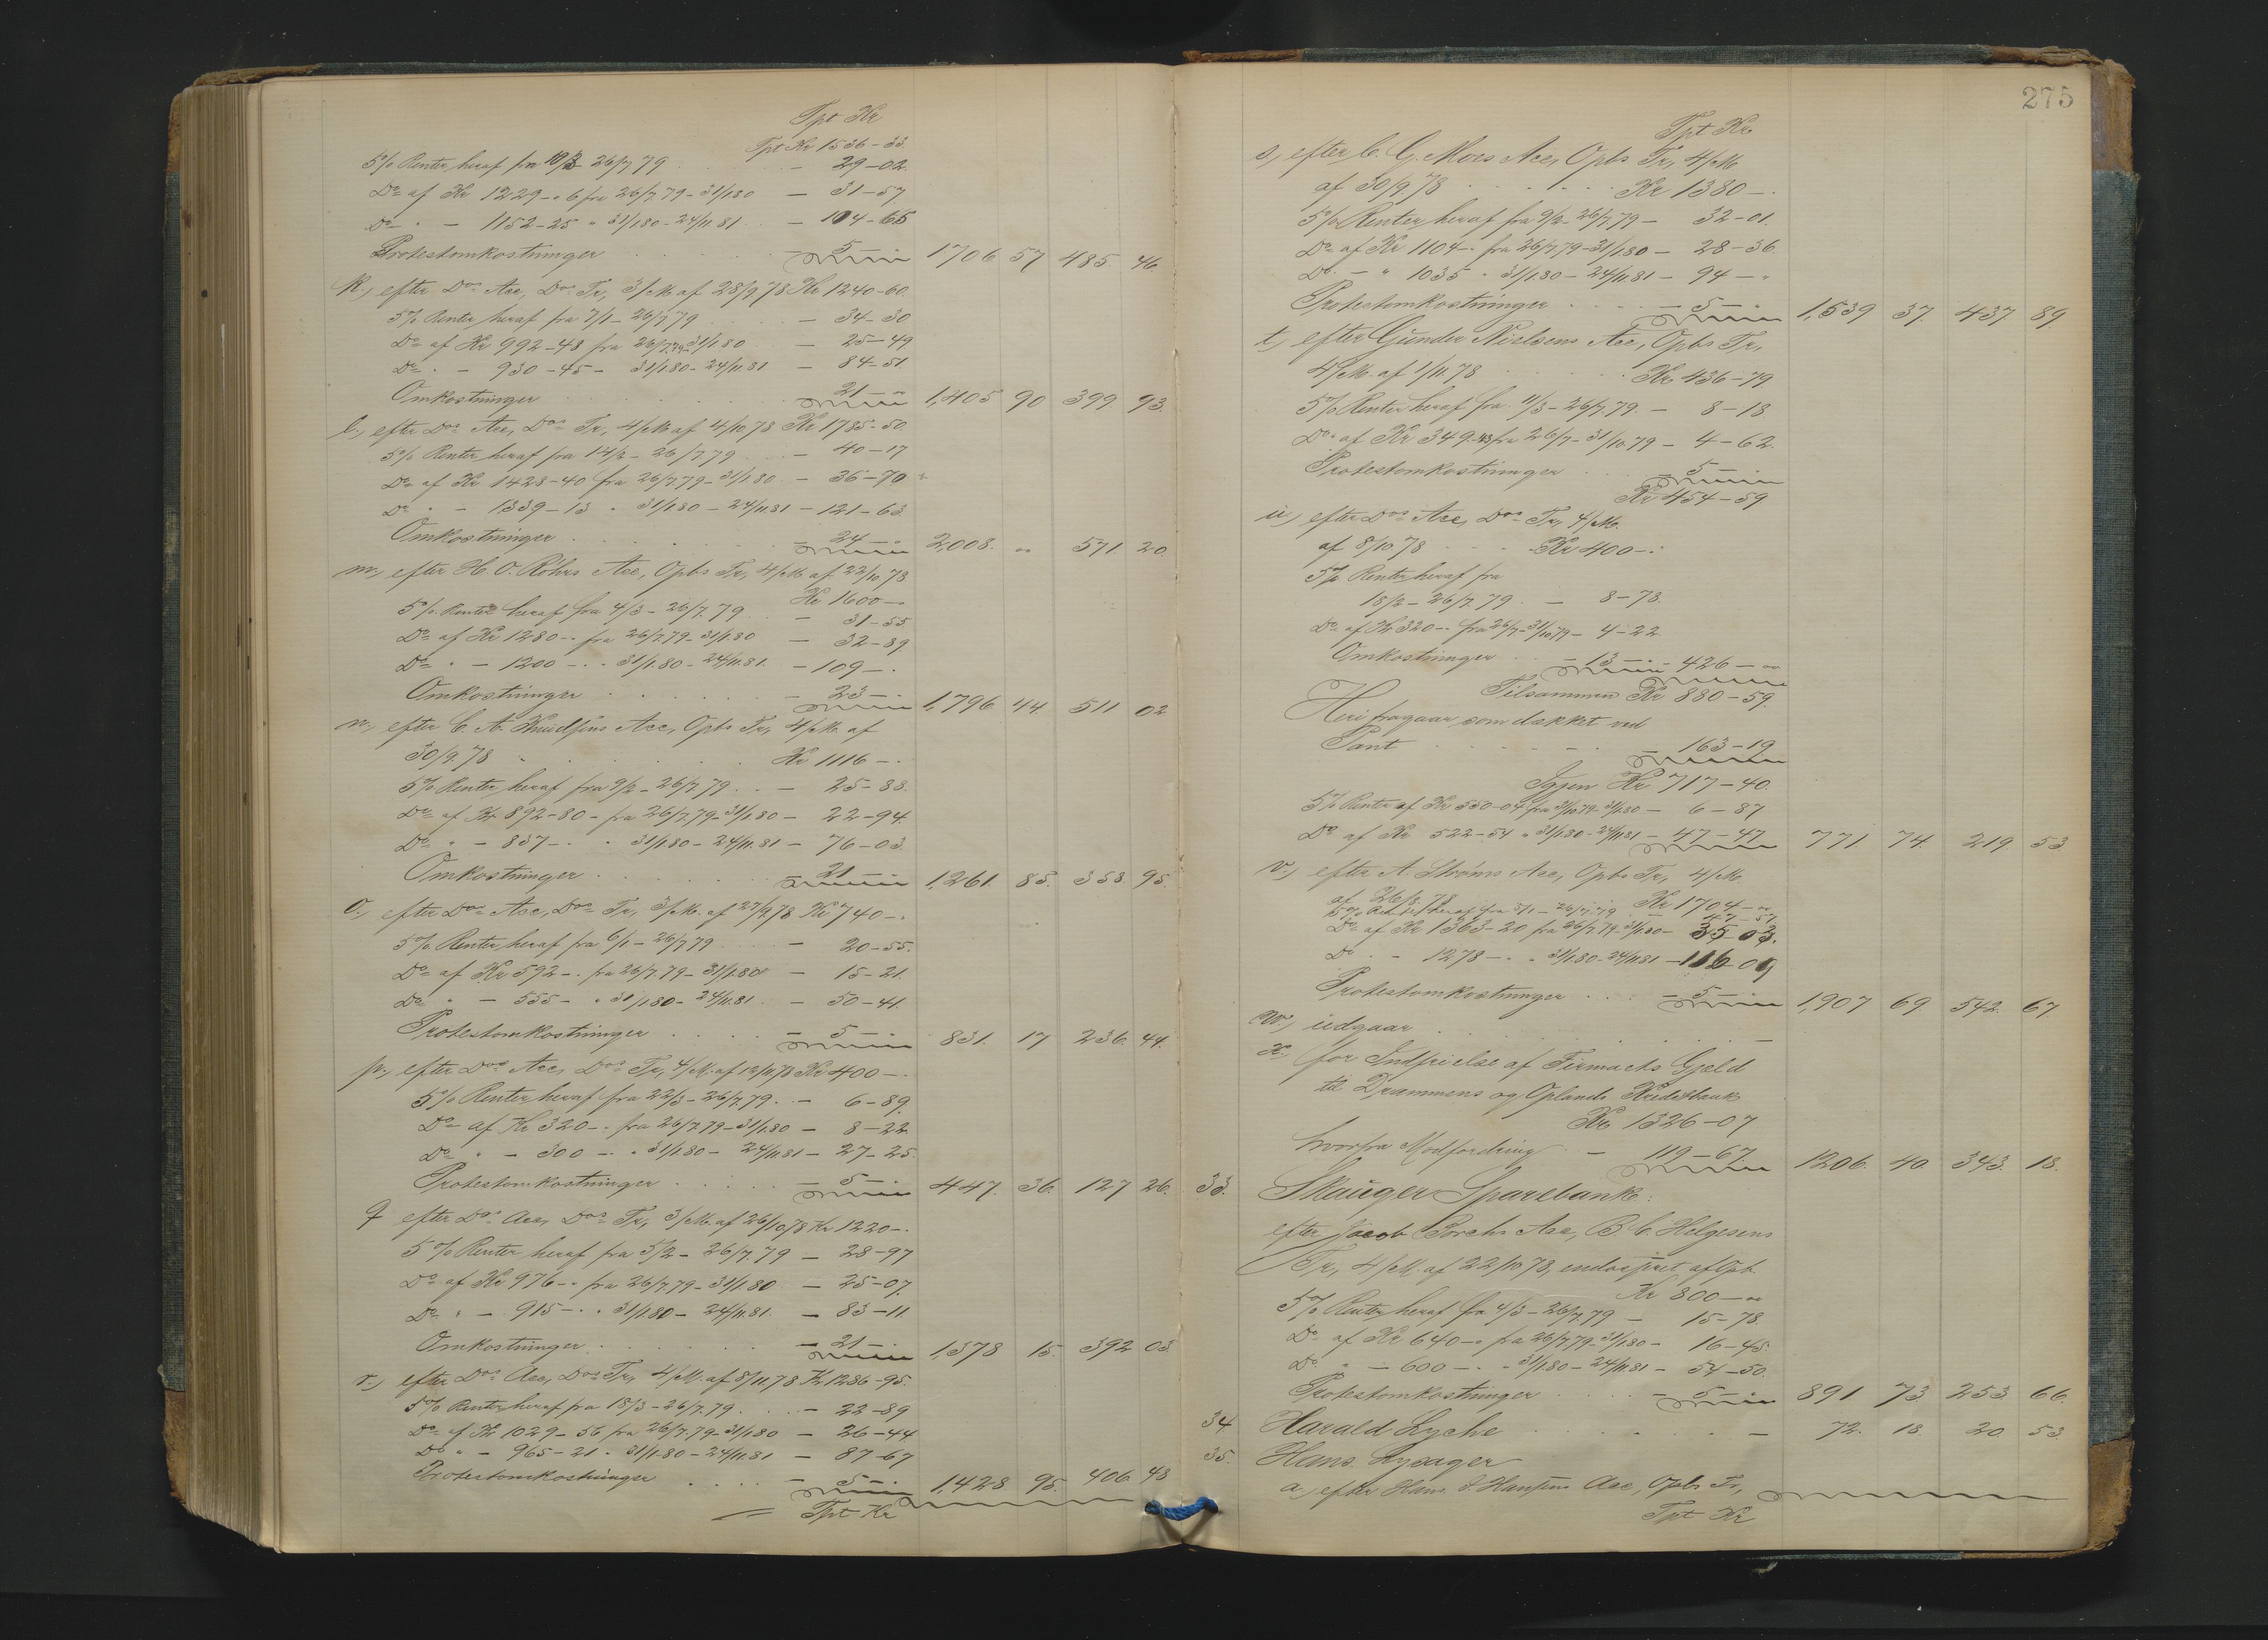 Tpt Kr
Tpt Kr 1536-33
5% Renter heraf fra 10/3 26/7 79 - 29-02
Do af Kr 1229-06 fra 26/7 79-31/1 80 - 31-57
Do " - 1152-25 " 31/1 80-24/11 81 - 104-65
Protestomkostninger - 5-" 1706 57 485 46
k, efter Dos Acc, Dos Tr, 3/M af 28/9 78 Kr 1240-60
5% Renter heraf fra 7/1-26/7 79 - 34-30
Do af Kr 992-48 fra 26/7 79-31/1 80 - 25-49
Do " - 930-45 - 31/1 80-24/11 81 - 84-51
Omkostninger 21-" 1,405 90 399 93
l, efter Dos Acc, Dos Tr, 4/M af 4/10 78 Kr 1785-50
5% Renter heraf fra 14/2-26/7 79 - 40-17
Do af Kr 1428-40 fra 26/7 79-31/1 80 - 36-70
Do " - 1339-13 " 31/1 80-24/11 81 - 121-63
Omkostninger - 24-" 2008 " 571 20
m, efter H. O. Röhrs Acc, Opbs Tr, 4/M af 22/10 78
Kr 1600-"
5% Renter heraf fra 4/3-26/7 79 - 31-55
Do af Kr 1280-" fra 26/7 79-31/1 80 - 32-89
Do " - 1200-" " 31/1 80-24/11 81 - 109-"
Omkostninger - 23-" 1,796 44 511 02
n, efter C. A. Knudsens Acc, Opbs Tr, 4/M af
30/9 78 Kr 1116-"
5% Renter heraf fra 9/2-26/7 79 - 25-88
Do af Kr 892-80 - fra 26/7 79-31/1 80 - 22-94
Do " - 837-" " 31/1 80-24/11 81 - 76-03
Omkostninger - 21-" 1,261 85 358 95
o, efter Dos Acc, Dos Tr, 3/M af 27/9 78 Kr 740-"
5% Renter heraf fra 6/1-26/7 79 - 20-55
Do af Kr 592-" fra 26/7 79-31/1 80 - 15-21
Do " - 555- " 31/1 80-24/11 81 - 50-41
Protestomkostninger - 5-" 831 17 236 44
p, efter Dos Acc, Dos Tr, 4/M af 12/11 78 Kr 400-"
5% Renter heraf fra 22/3-26/7 79 - 6-89
Do af Kr 320-" fra 26/7 79-31/1 80 - 8-22
Do " - 300-" " 31/1 80-24/11 81 - 27-25
Protestomkostninger - 5-" 447 36 127 26
q efter Dos Acc, Dos Tr, 3/M af 26/10 78 Kr 1220-"
5% Renter heraf fra 5/2-26/7 79 - 28-97
Do af Kr 976-" fra 26/7 79-31/1 80 - 25-07
Do " - 915-" " 31/1 80-24/11 81 - 83-11
Omkostninger - 21-" 1,378 15 392 03
r, efter Dos Acc, Dos Tr, 4/M af 8/11 78 Kr 1286-95
5% Renter heraf fra 18/3-26/7 79 - 22-89
Do af Kr 1029-56 fra 26/7 79-31/1 80 - 26-44
Do " - 965-21 " 31/1 80-24/11 81 - 87-67
Protestomkostninger - 5-" 1,428 95 406 48
Tpt Kr
275
Tpt Kr
s, efter C. G. Moes Acc, Opbs Tr, 4/M
af 30/9 78 Kr 1380-"
5% Renter heraf fra 9/2-26/7 79 - 32-01
Do af Kr 1104-" fra 26/7 79-31/1 80 - 28-36
Do - " 1035 " 31/1 80-24/11 81 - 94-"
Protestomkostninger - 5-" 1,539 37 437 89
t, efter Gunder Nielsens Acc, Opbs Tr,
4/M af 1/11 78 Kr 436-79
5% Renter heraf fra 11/3-26/7 79 - 8-18
Do af Kr 349-43 fra 26/7-31/10 79 - 4-62
Protestomkostninger - 5-"
Kr 454-59
u, efter Dos Acc, Dos Tr, 4/M
af 8/10 78 Kr 400-"
5% Renter heraf fra
18/2-26/7 79 - 8-78
Do af Kr 320-" fra 26/7-31/10 79 - 4-22
Omkostninger - 13-" - 426-"
Tilsammen Kr 880-59
Heri fragaar som dækket ved
Pant - 163-19
Igjen Kr 717-40
5% Renter af Kr 550-04 fra 31/10 79-31/1 80 - 6-87
Do af Kr 522-54 " 31/1 80-24/11 81 - 47-47 771 74 219 53
v, efter A. Strøms Acc, Opbs Tr, 4/M
af 26/8 78 Kr 1704-"
5% Renter heraf fra 5/1-26/7 79 - 47-57
Do af Kr 1363-20 fra 26/7 79-31/1 80 - 35-03
Do " - 1278-" " 31/1 80-24/11 81 - 116-09
Protestomkostninger - 5-" 1,907 69 542 67
w, udgaar -
x, for Indfrielse af Firmaets Gjæld
til Drammens og Oplands Kreditbank
Kr 1326-07
hvorfra Modfordring - 119-67 1206 40 343 18
33. Skauger Sparebank:
efter Jacob Borchs Acc, B. C. Helgesens
Tr, 4/M af 22/10 78, endosseret af Opb.
Kr 800-"
5% Renter heraf fra 4/3-26/7 79 - 15-78
Do af Kr 640-" fra 26/7 79-31/1 80 - 16-45
Do " - 600-" " 31/1 80-24/11 81 - 54-50
Protestomkostninger - 5-" 891 73 253 66
34. Harald Lyche - 72 18 20 53
35. Hans Lysager
a, efter Hans J. Hansens Acc, Opbs Tr,
Tpt Kr